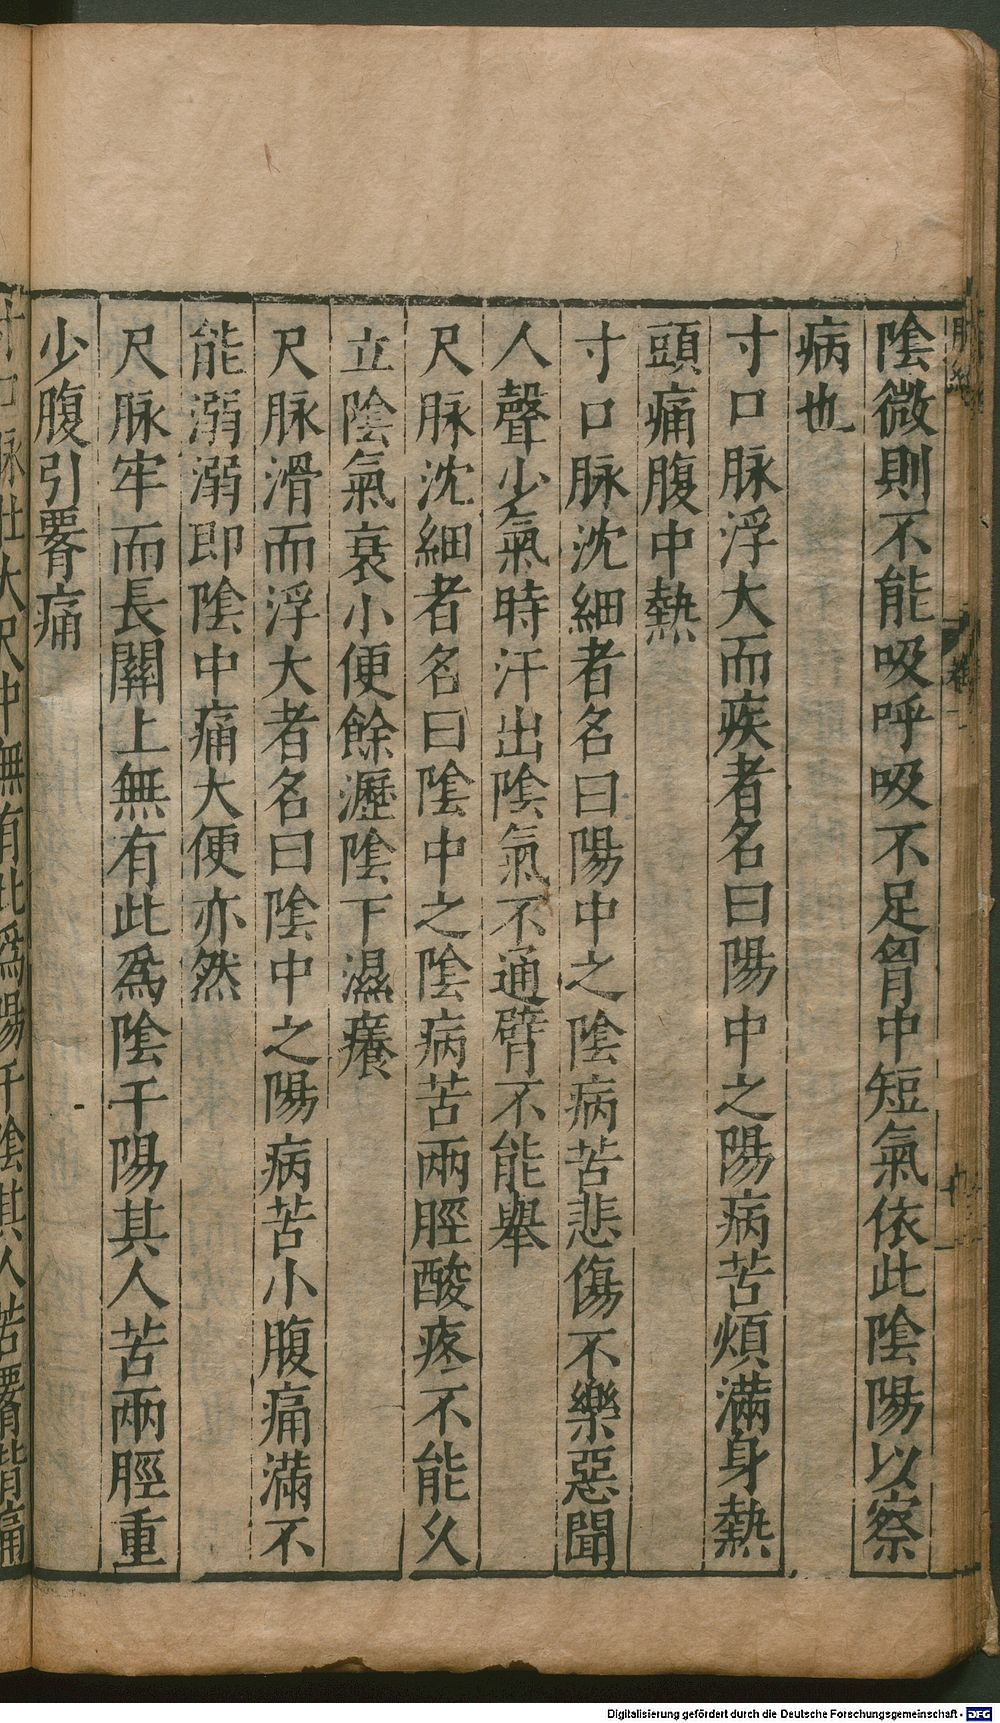 陰微則不能吸呼吸不足胷中短氣依此陰陽以察
病也
寸口脉浮大而疾者名曰陽中之陽病苦煩滿身熱
頭痛腹中熱
寸口脉沈細者名曰陽中之陰病苦悲傷不樂惡聞
人聲少氣時汗出陰氣不通臂不能舉
尺脉沈細者名曰陰中之陰病苦兩脛酸疼不能久
立陰氣衰小便餘瀝陰下濕癢
尺脉滑而浮大者名曰陰中之陽病苦小腹痛滿不
能溺溺即陰中痛大便亦然
尺脉牢而長關上無有此為陰干陽其人苦兩脛重
少腹引䙅痛
脉壯大尺中無有此為陽干陰其人苦䙅背痛
Digitalisierung gefördert durch die Deutsche Forschungsgemeinschaft - DFG